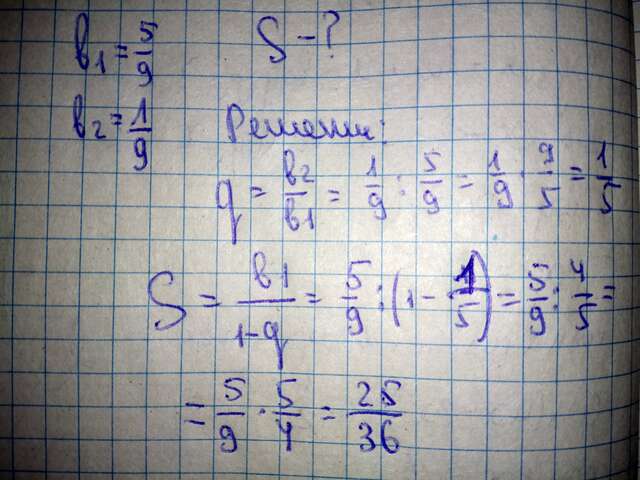 b₁ = 5/9 S - ?
b₂ = 1/9 Решение:
q = b₂/b₁ = 1/9 : 5/9 = 1/9 · 9/5 = 1/5
S = b₁/(1-q) = 5/9 : (1 - 1/5) = 5/9 : 4/5 =
= 5/9 · 5/4 = 25/36